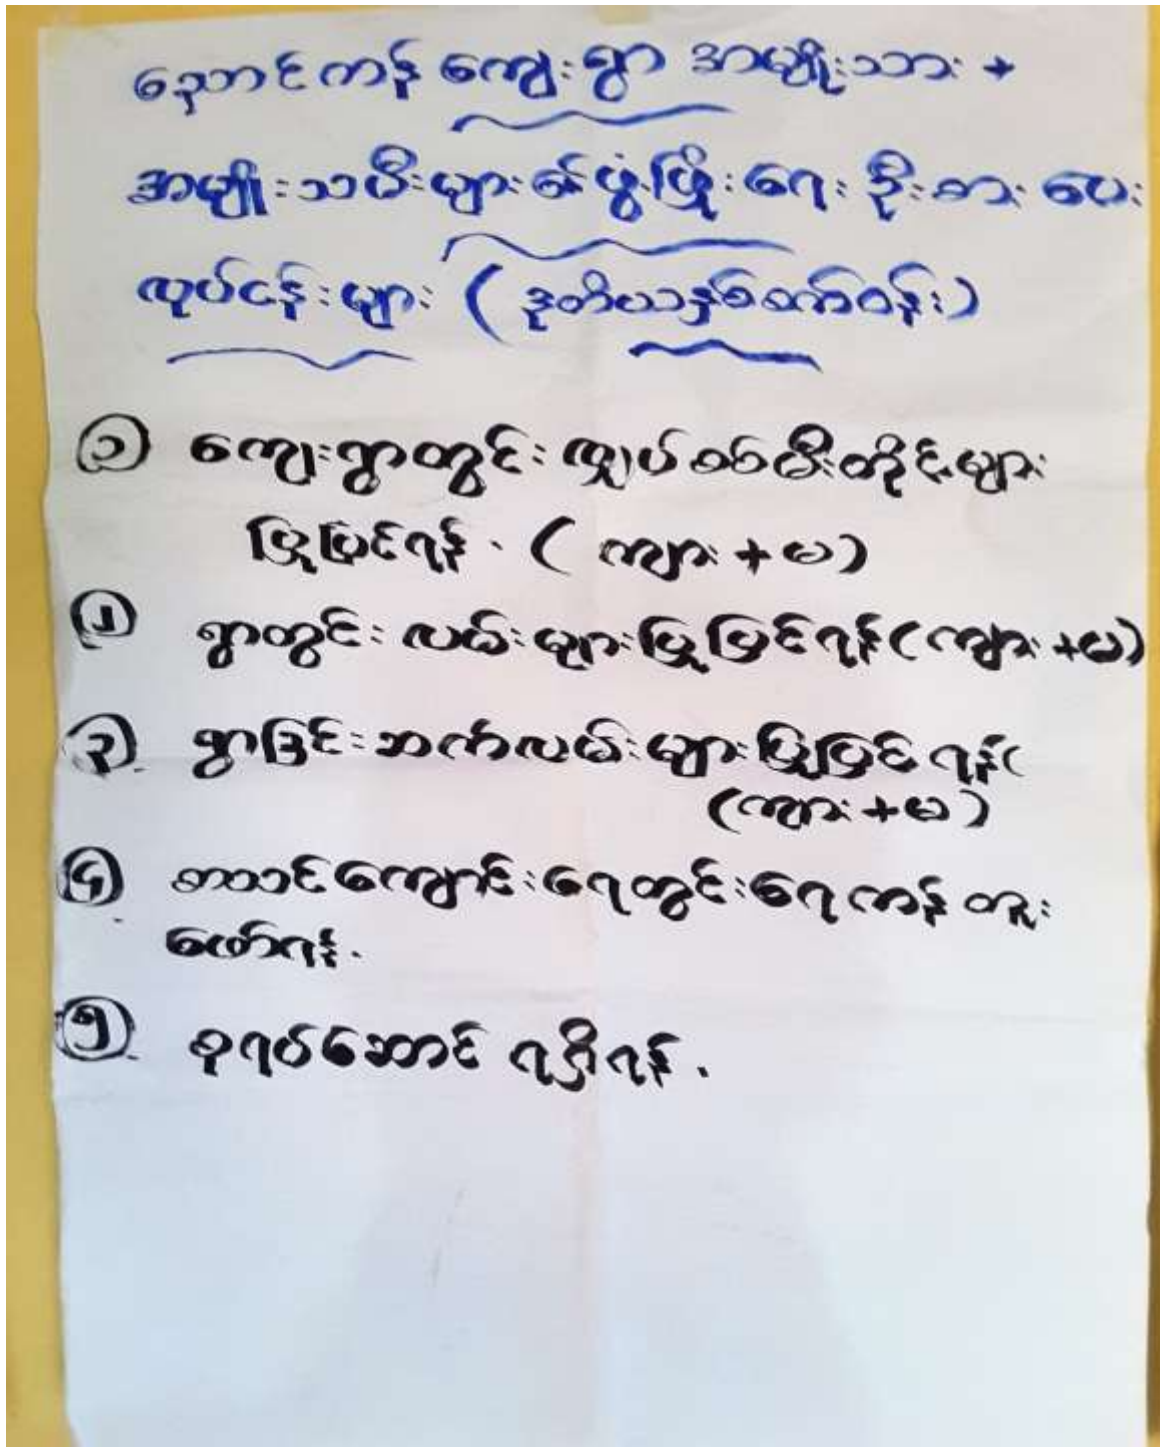 ညောင်ကန် ကျေးရွာ အမျိုးသား +
အမျိုးသမီးများ၏ ဖွံ့ဖြိုးရေး ဦးစားပေး
လုပ်ငန်းများ ( ဒုတိယနှစ်စက်ဝန်း )
၁ ကျေးရွာတွင်း လျှပ်စစ်မီးတိုင်များ
ပြုပြင်ရန်. ( ကျား + မ )
၂ ရွာတွင်း လမ်းများပြုပြင်ရန် (ကျား +မ)
၃ ရွာခြင်းဆက်လမ်းများပြုပြင်ရန် (
(ကျား +မ )
၄ စာသင်ကျောင်းရေတွင်းရေကန် တူး
ဖော်ရန်.
၅ စုရပ်ဆောင် ရရှိရန်.